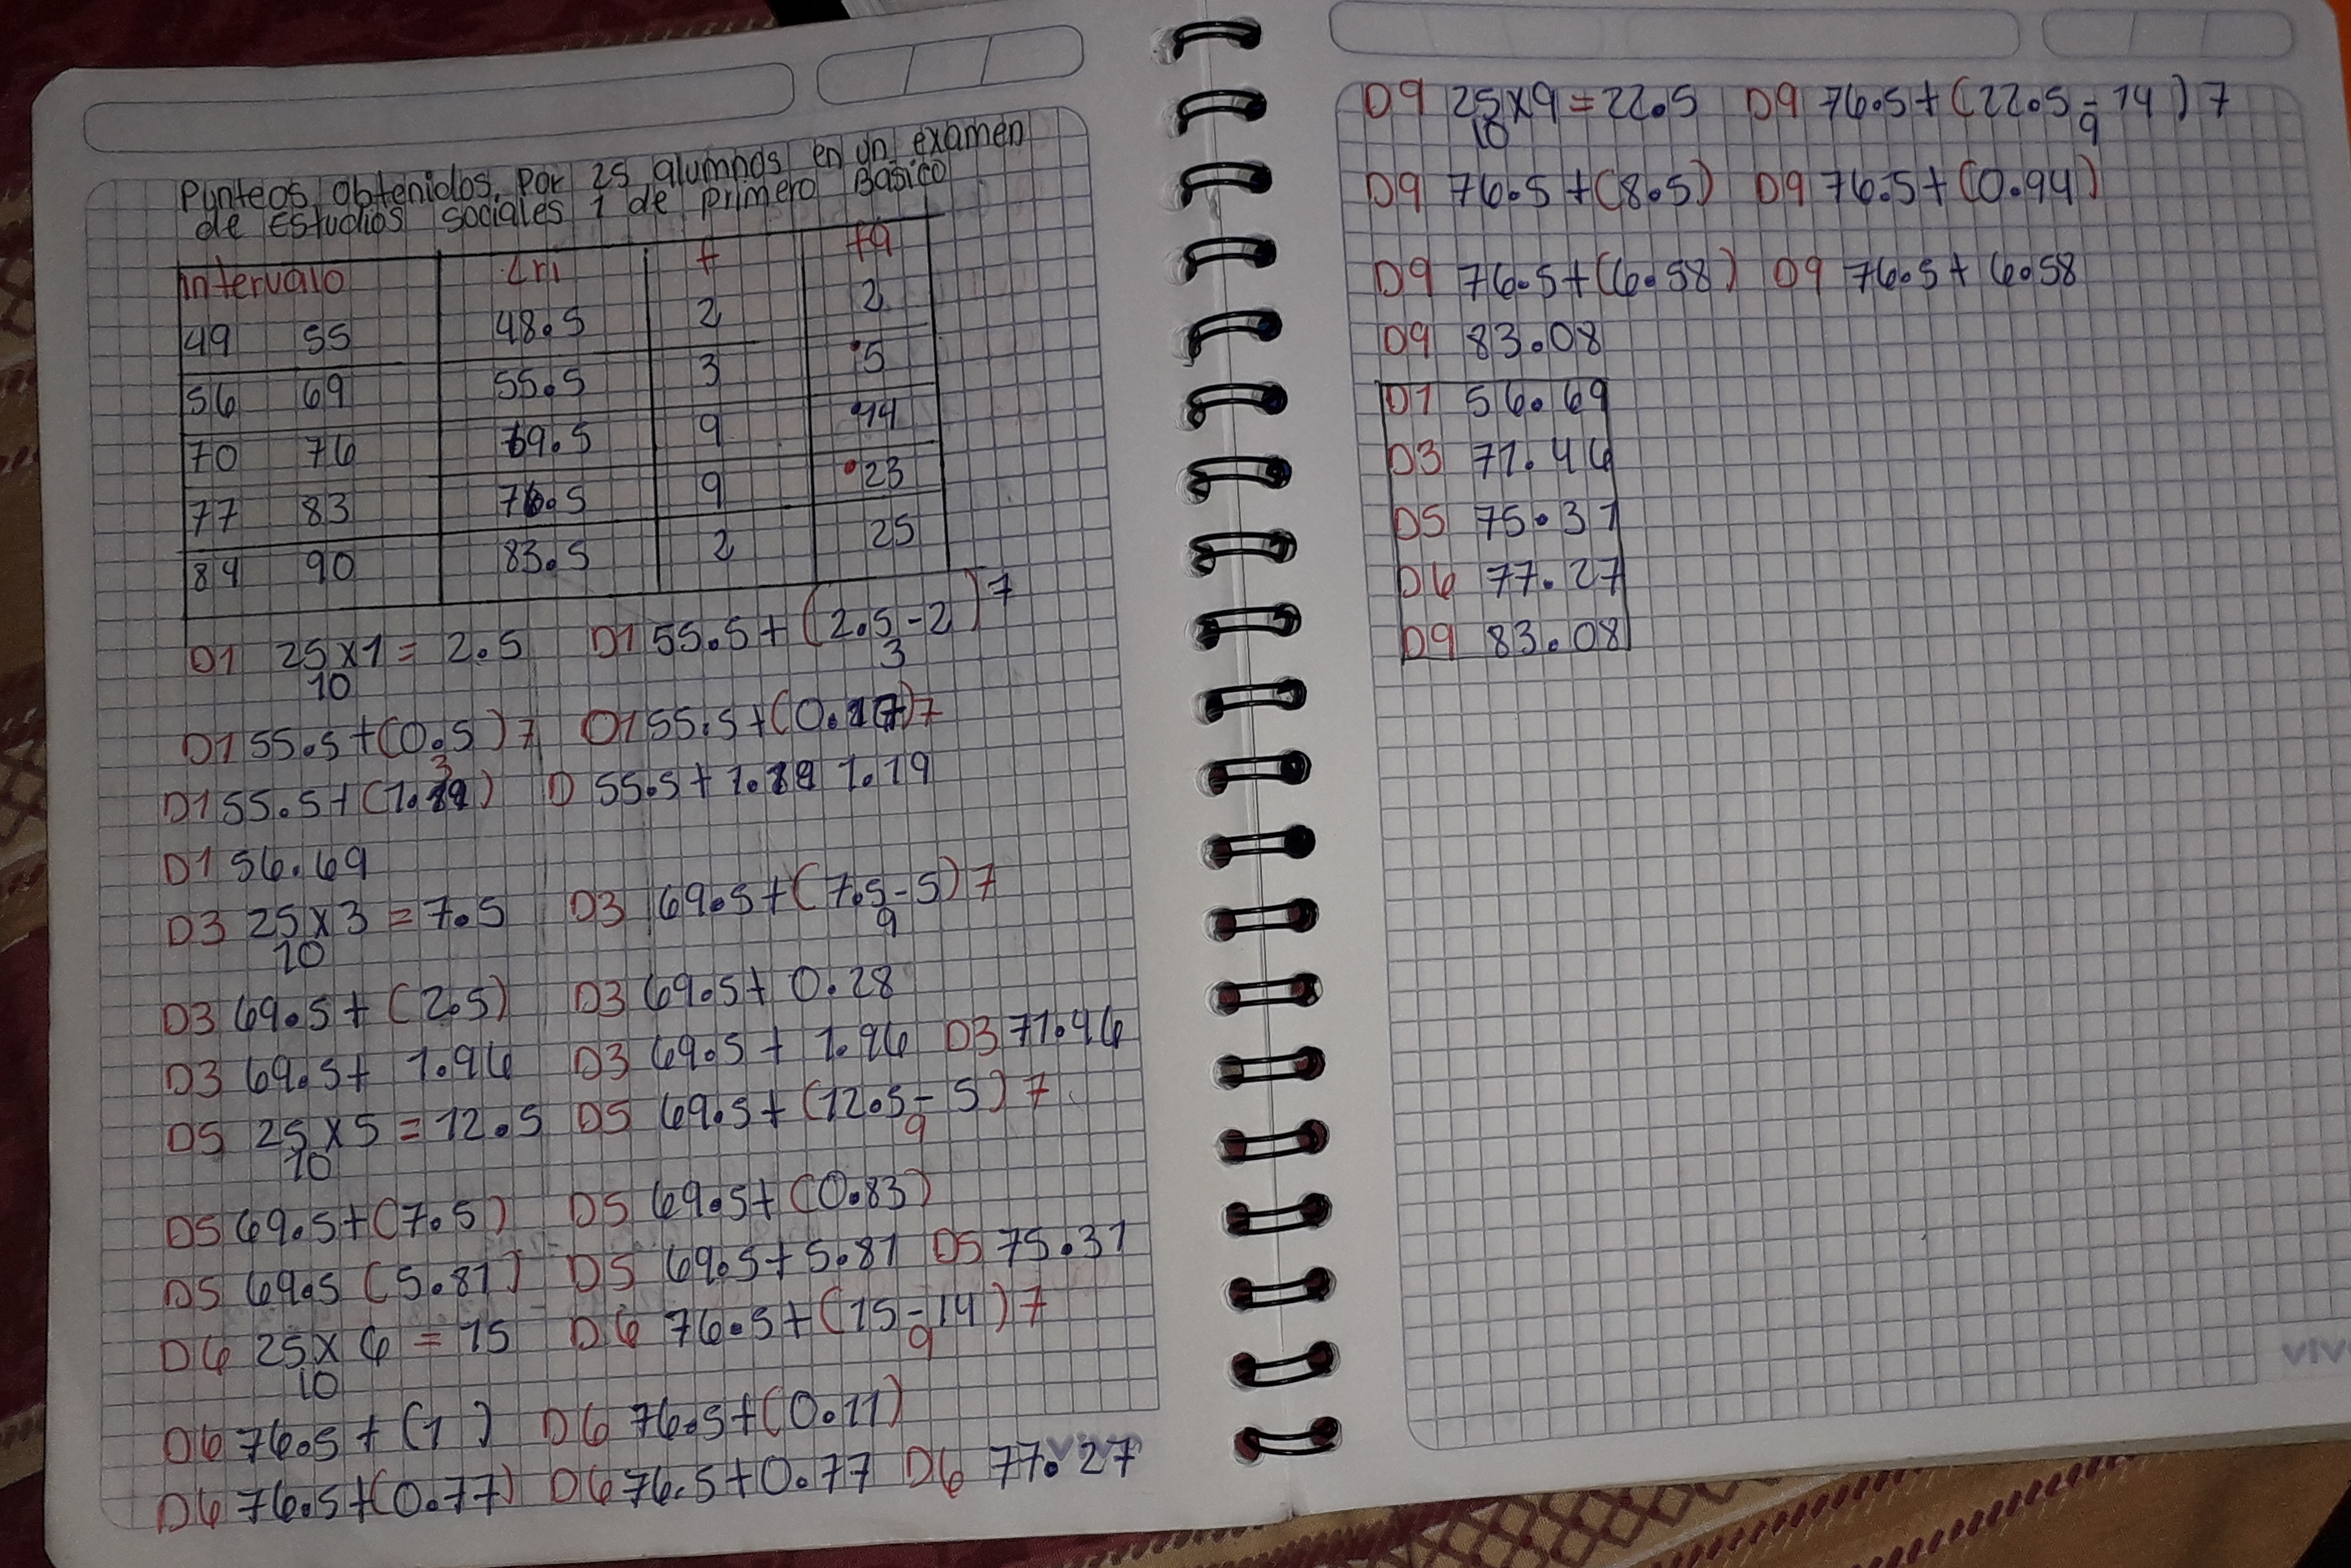 Punteos obtenidos por 25 alumnos en un examen
de Estudios sociales 1 de primero Basico
intervalo Lri f fa
49 55 48.5 2 2
56 69 55.5 3 5
70 76 69.5 9 14
77 83 76.5 9 23
84 90 83.5 2 25
D1 25x1 = 2.5 D1 55.5+(2.5-2)7
10 3
D1 55.5+(0.5)7 D1 55.5+(0.17)7
3
D1 55.5+(1.19) D 55.5+1.19 1.19
D1 56.69
D3 25x3 = 7.5 D3 69.5+(7.5-5)7
10 9
D3 69.5+(2.5) D3 69.5+ 0.28
D3 69.5+ 1.96 D3 69.5+ 1.96 D3 71.46
D5 25x5 = 12.5 D5 69.5+(12.5-5)7
10 9
D5 69.5+(7.5) D5 69.5+(0.83)
D5 69.5 (5.81) D5 69.5+5.81 D5 75.31
D6 25x6 = 15 D6 76.5+(15-14)7
10 9
D6 76.5+(1) D6 76.5+(0.11)
D6 76.5+(0.77) D6 76.5+0.77 D6 77.27
vivo
D9 25x9 = 22.5 D9 76.5+(22.5-14)7
10 9
D9 76.5+(8.5) D9 76.5+(0.94)
D9 76.5+(6.58) D9 76.5+6.58
D9 83.08
D1 56.69
D3 71.46
D5 75.31
D6 77.27
D9 83.08